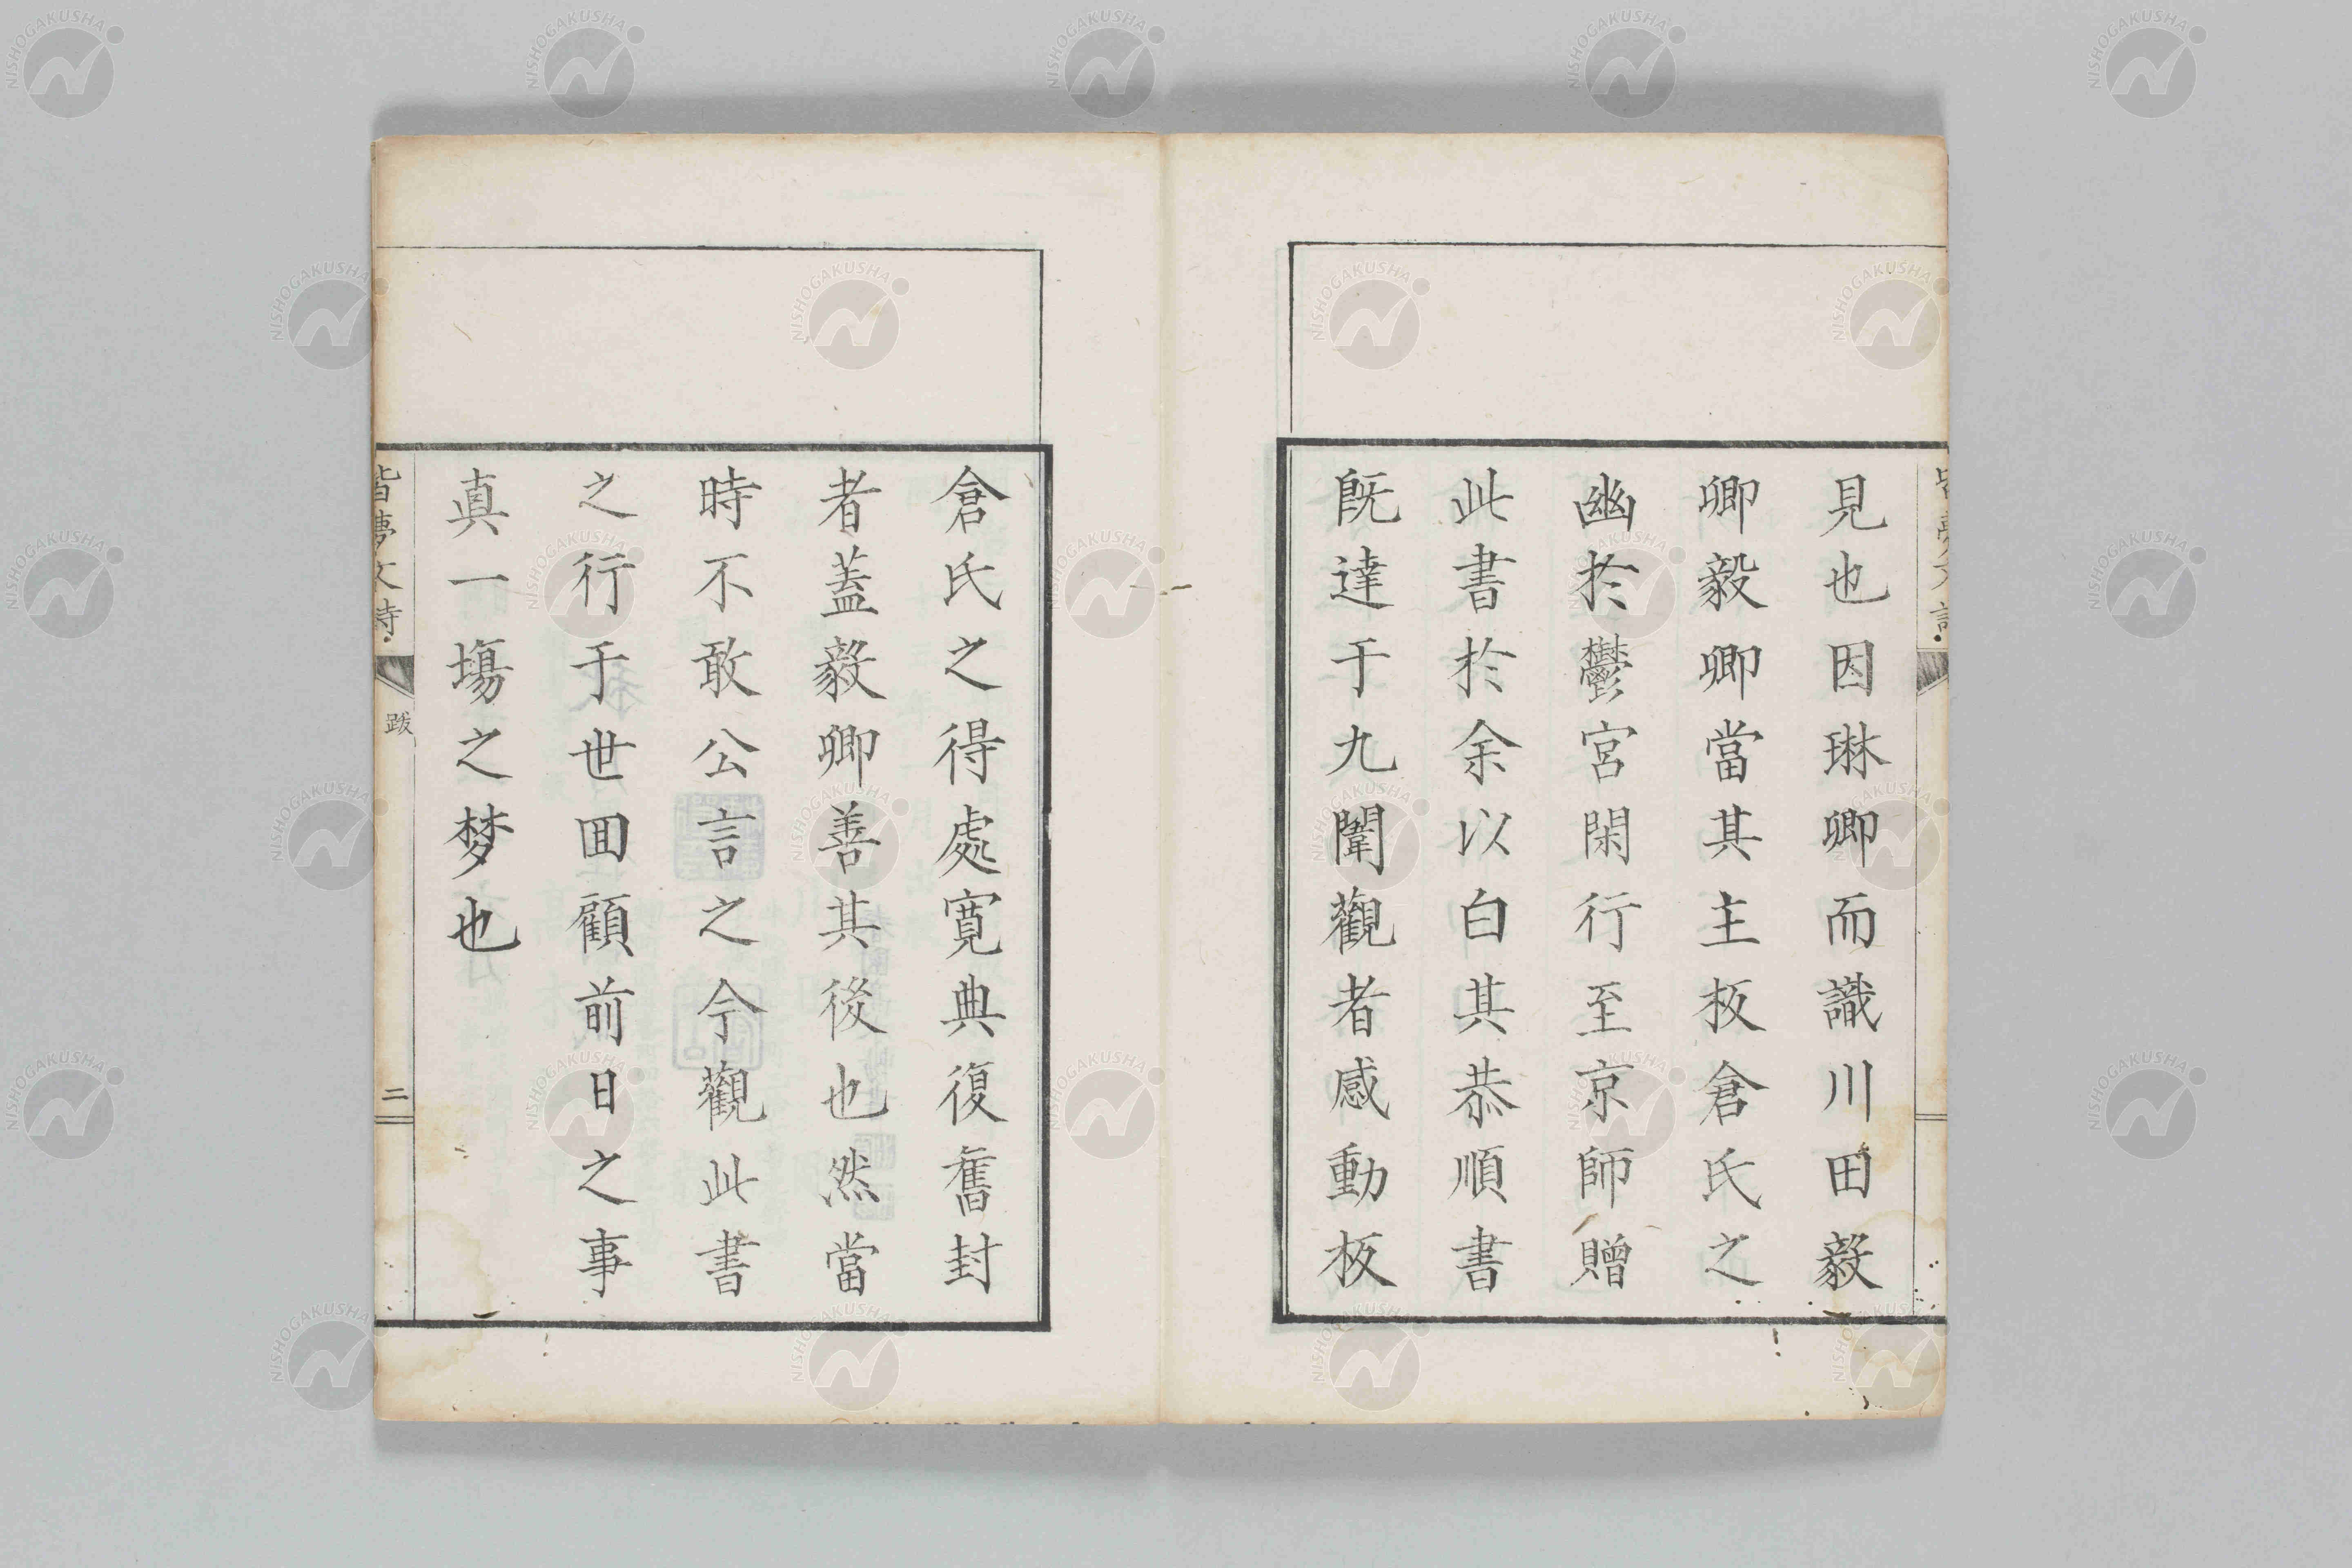 見也因琳卿而識川田毅
卿毅卿當其主板倉氏之
幽於鬱宮閑行至京師贈
此書於余以白其恭順書
既達于九闈觀者感動板
倉氏之得處寬典復舊封
者蓋毅卿善其後也然當
時不敢公言之今觀此書
之行于世囬顧前日之事
真一塲之梦也
皆夢文詩
跋
二
NISHOGAKUSHA